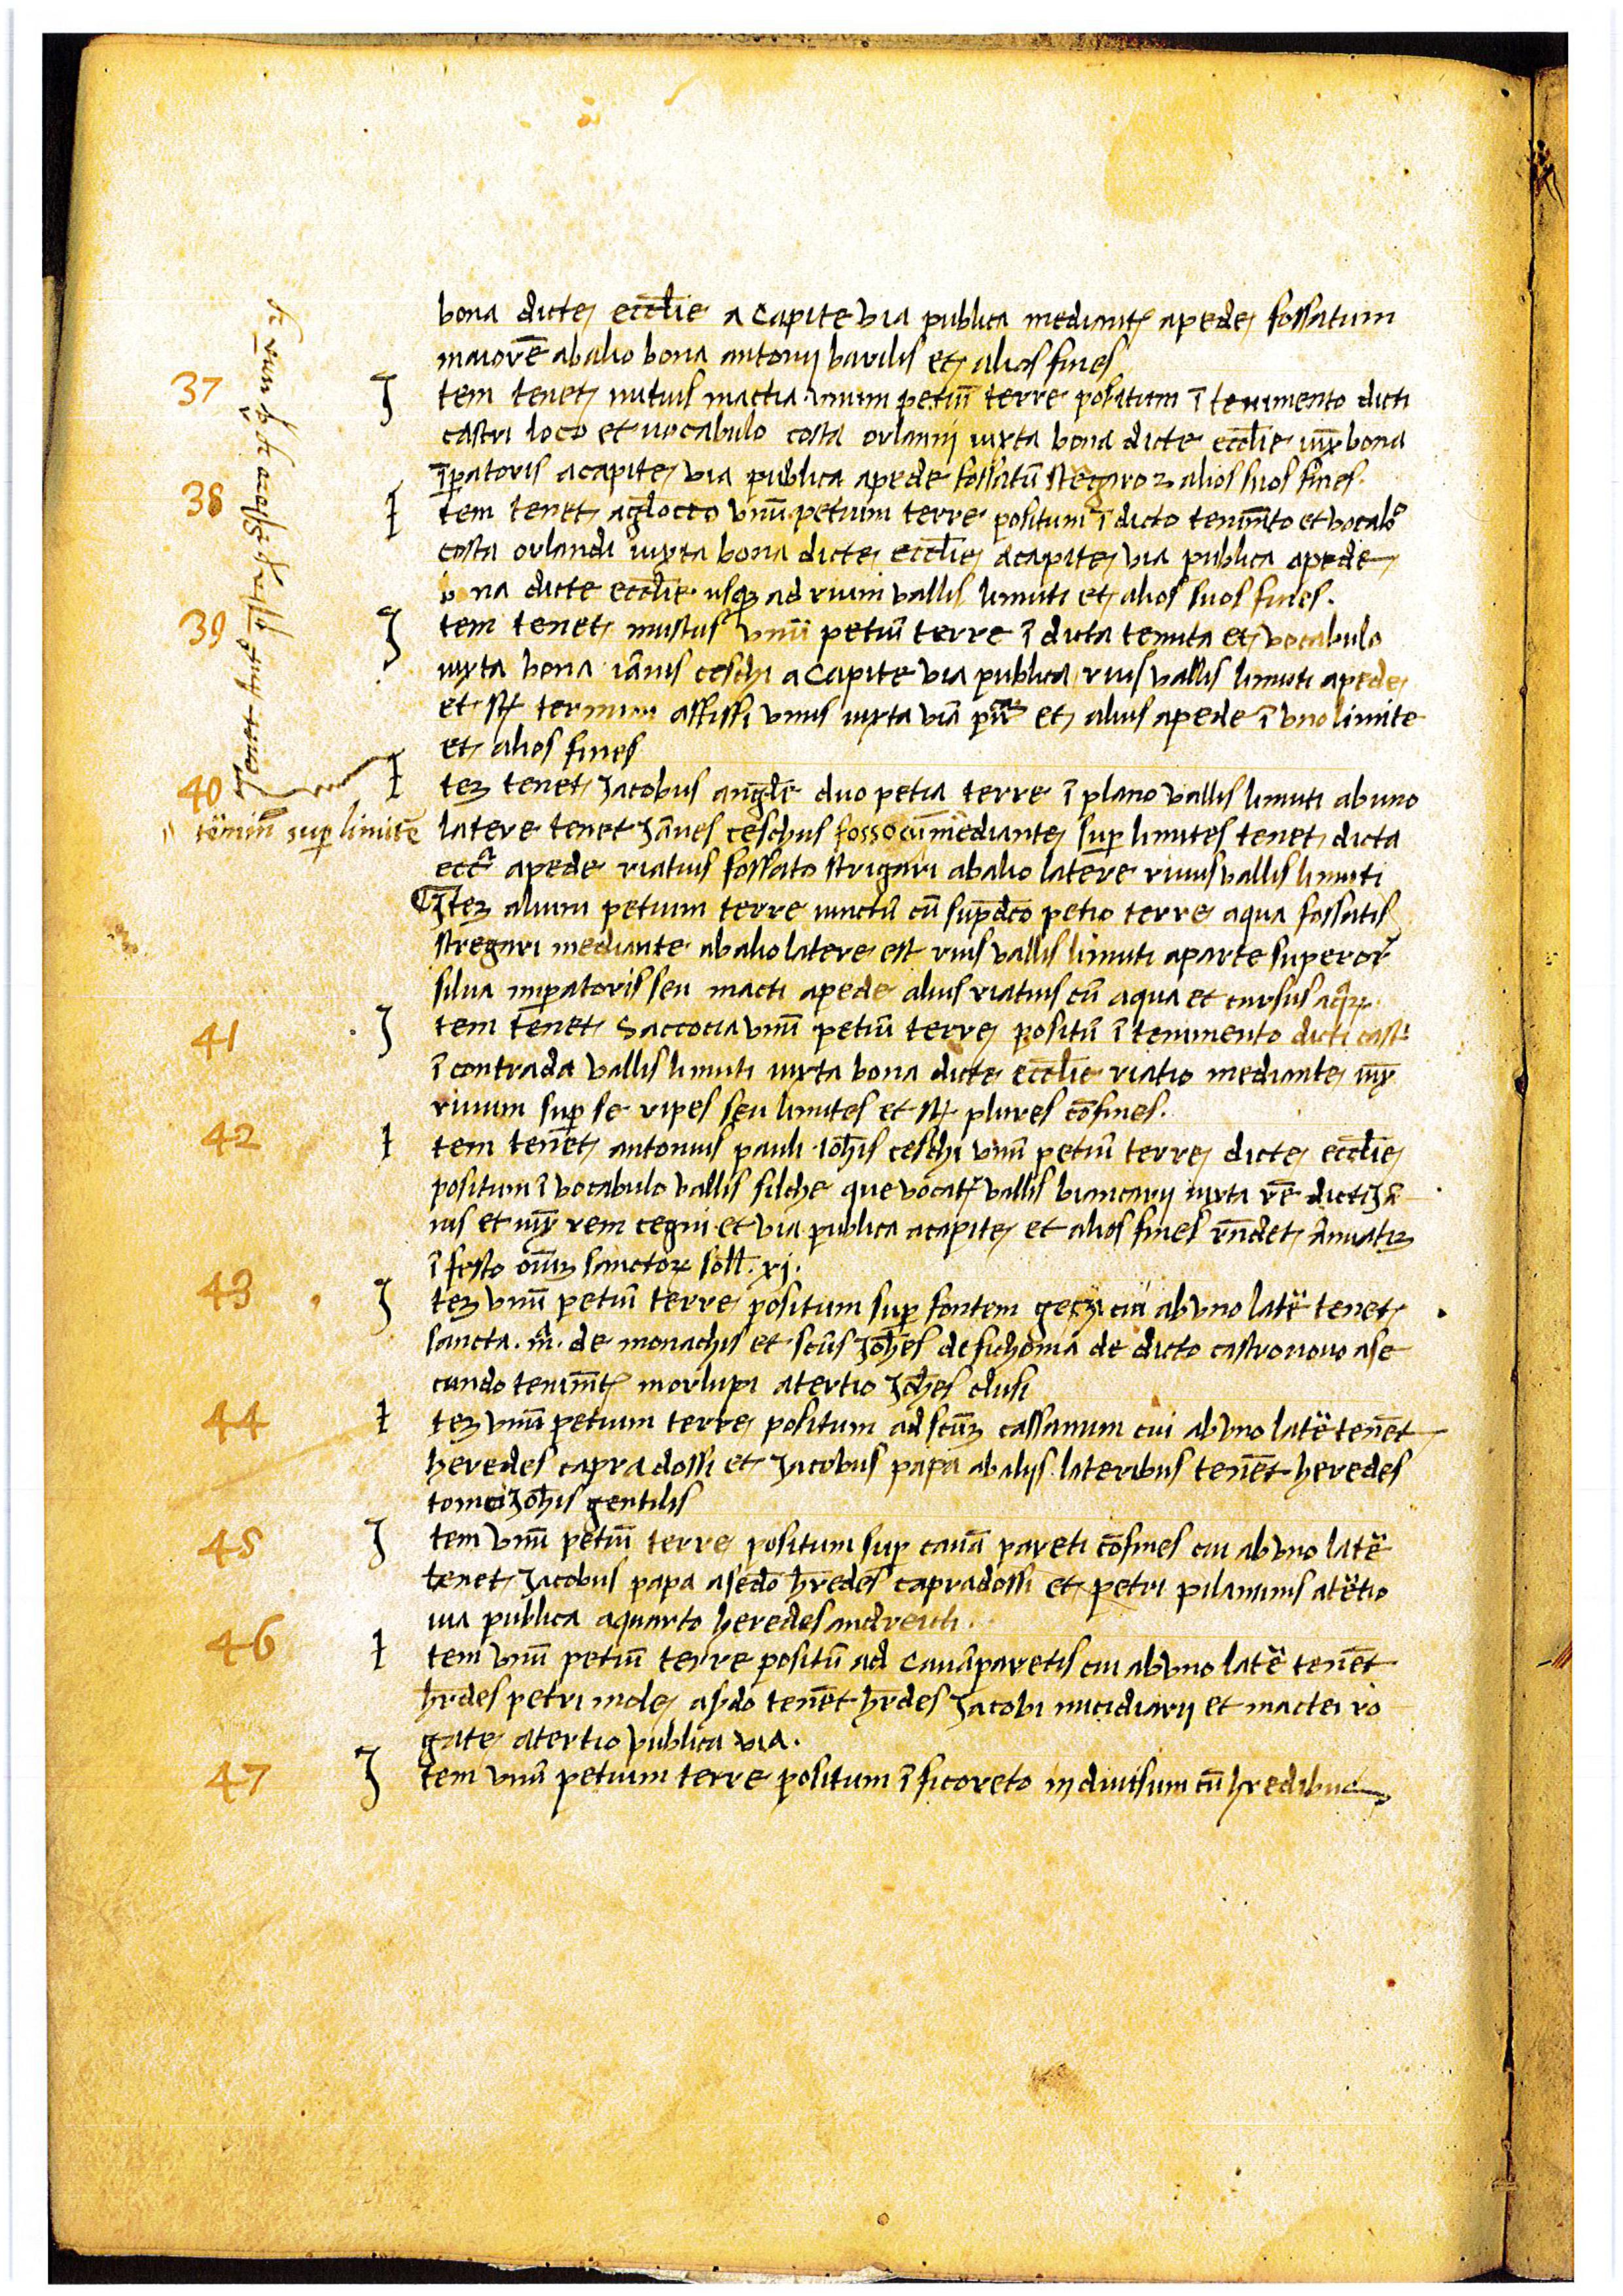 bona dicte eccl̄ie a capite via publica mediante apede fossatum
maiorē abalio bona antonij barilis et alios fines
37 Item tenet nutius mactia unum petiū terre positum ī tenimento dicti
castri loco et vocabulo costa orlanni iuxta bona dicte eccl̄ie iux̄ bona
īperatoris acapite via publica apede fossatū stregaro ⁊ alios suos fines.
38 Item tenet unū petium terre positum ī dicto tenimēto et vocalo
costa orlandi iuxta bona dicte eccl̄ie acapite via publica apede
bona dicte eccl̄ie usqꝫ ad riuum vallis limiti et alios suos fines.
39 Item tenet mustus unū petiū terre ī dicta tenuta et vocabulo
iuxta bona iānis ceschi a capite via publica rius vallis limiti apede
et st̄ termini affissi unus iuxta viā et alius apede ī uno limite
et alios fines
40 Iteꝫ tenet Jacobus duo petia terre ī plano vallis limiti abuno
sup̄ limitē
latere tenet Jānes ceschus fosso cū mediante sup̄ limites tenet dicta
apede riatus fossato strigari abalio latere riuus vallis limiti
Iteꝫ alium petium terre iunctū cū sup̄dc̄o petio terre aqua fossatis
stregari mediante abalio latere est rius vallis limiti aparte superior
silua imperatoris seu macti apede alius riatus cū aqua et cursus
41 Item tenet Saccocia unū petiū terre positū ī tenimento dicti castⁱ
ī contrada vallis limiti iuxta bona dicte eccl̄ie riatio mediante iux̄
riuum sup̄ se ripes seu limites et st̄ plures cōfines.
42 Item tenet antonius pauli Ioh̄is ceschi unū petiū terre dicte eccl̄ie
positum ī vocabulo vallis silche que vocat̄ vallis biancarij iuxta rē dicti Jā
nis et iux̄ rem cegni et via publica acapite et alios fines rn̄det ānuatiꝫ
ī festo om̄iꝫ sanctoꝝ soll. xj.
43 Iteꝫ unū petiū terre positum sup̄ fontem cui abuno latē tenet
sancta. mᵃ. de monachis et sc̄us Joh̄es de de dicto castronouo ase
cundo tenimt̄ morlupi atertio Joh̄es clusi
44 Iteꝫ unū petium terre positum ad sc̄uꝫ cassanum cui abuno latē tenēt
heredes capradossi et Jacobus papa abalijs lateribus tenēt heredes
tomei Joh̄is gentilis
45 Item unū petiū terre positum sup̄ cauā pareti cōfines cui abuno latē
tenet Jacobus papa asedo h̄redes capradossi et petri pilamunis atētio
uia publica aquarto heredes
46 Item unū petiū terre positū ad cauā paretis cui abuno latē tenēt
h̄rdes petri mole asdo tenēt h̄rdes Jacobi mitidiarij et mactei ro
gate atertio publica via.
47 Item unū petium terre positum ī ficoreto indiuisum cū h̄redibus